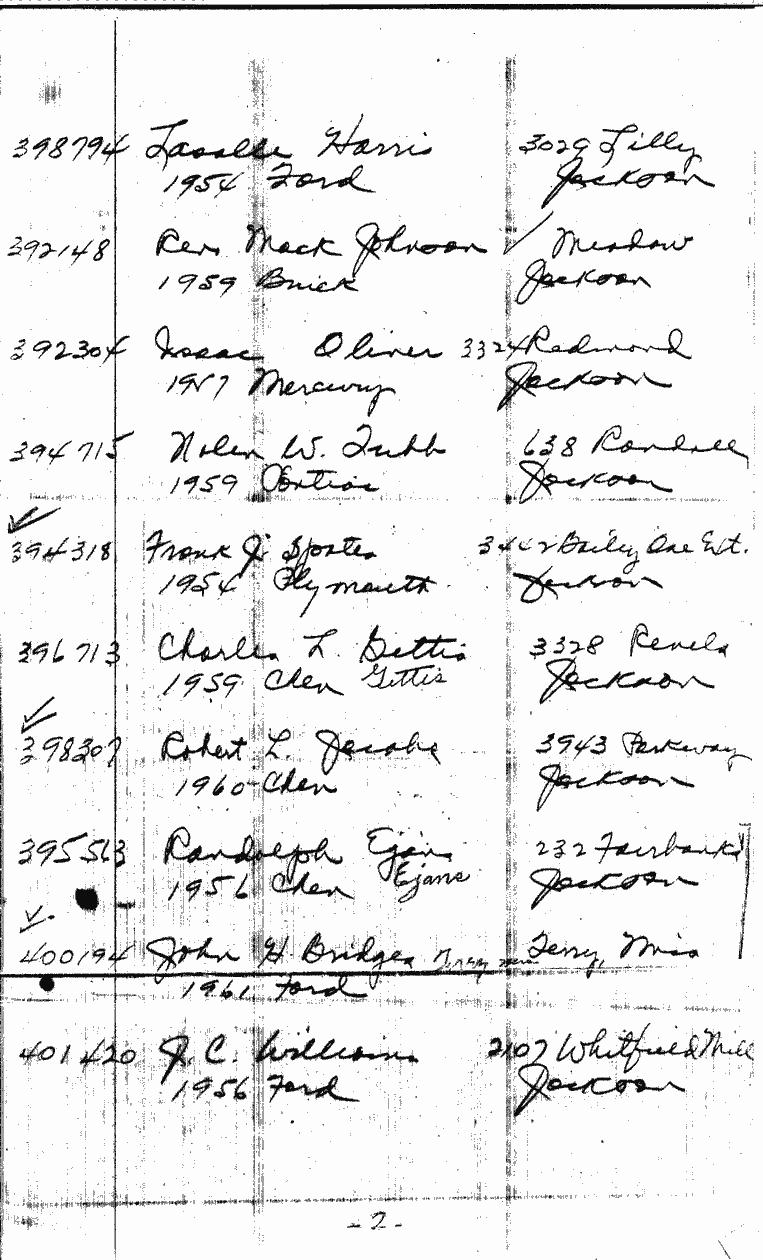 398794 Lasalle Harris 3029 Lilly
1954 Ford Jackson
392148 Rev Mack Johnson ✓ Meadow
1959 Buick Jackson
392304 Isaac Oliver 3324 Redmond
1957 Mercury Jackson
394715 Nolen W. Tubb 638 Randall
1959 Pontiac Jackson
✓
394318 Frank J. 3442 Bailey Ave Ext.
1954 Plymouth Jackson
396713 Charles L. Gettis 3328 Revels
1959 Chev Gettis Jackson
✓
398307 Robert L. Jacobs 3943 Parkway
1960 Chev Jackson
395513 Randolph Ejans 232 Fairbanks
1956 Chev Ejans Jackson
✓
400194 John H Bridges Terry, Miss
1961 Ford
401420 J. C. Williams 2107 Whitfield Mill
1956 Ford Jackson
- 2 -